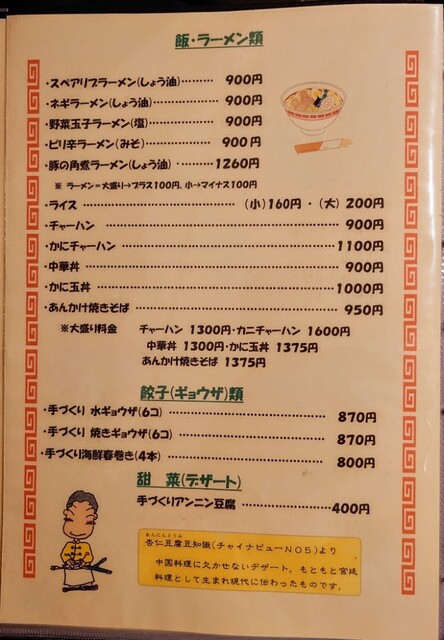 飯・ラーメン類
・スペアリブラーメン(しょう油)……… 900円
・ネギラーメン(しょう油)………… 900円
・野菜玉子ラーメン(塩)………… 900円
・ピリ辛ラーメン(みそ)………… 900円
・豚の角煮ラーメン(しょう油)・……… 1260円
※ ラーメン=大盛り→プラス100円、小→マイナス100円
・ライス………………………… (小)160円 ・ (大) 200円
・チャーハン ………………………………… 900円
・かにチャーハン ……………………………… 1100円
・中華丼 ……………………………………… 900円
・かに玉丼 …………………………………… 1000円
・あんかけ焼きそば …………………………… 950円
※大盛り料金 チャーハン 1300円・カニチャーハン 1600円
中華丼 1300円・かに玉丼 1375円
あんかけ焼きそば 1375円
餃子(ギョウザ)類
・手づくり 水ギョウザ(6コ) ………………………… 870円
・手づくり 焼きギョウザ(6コ) ……………………… 870円
・手づくり海鮮春巻き(4本) ………………………… 800円
甜 菜(デザート)
手づくりアンニン豆腐 ………………… 400円
あんにんとうふ
杏仁豆腐豆知識(チャイナビューNO5)より
中国料理に欠かせないデザート。もともと宮廷
料理として生まれ現代に伝わったものです。